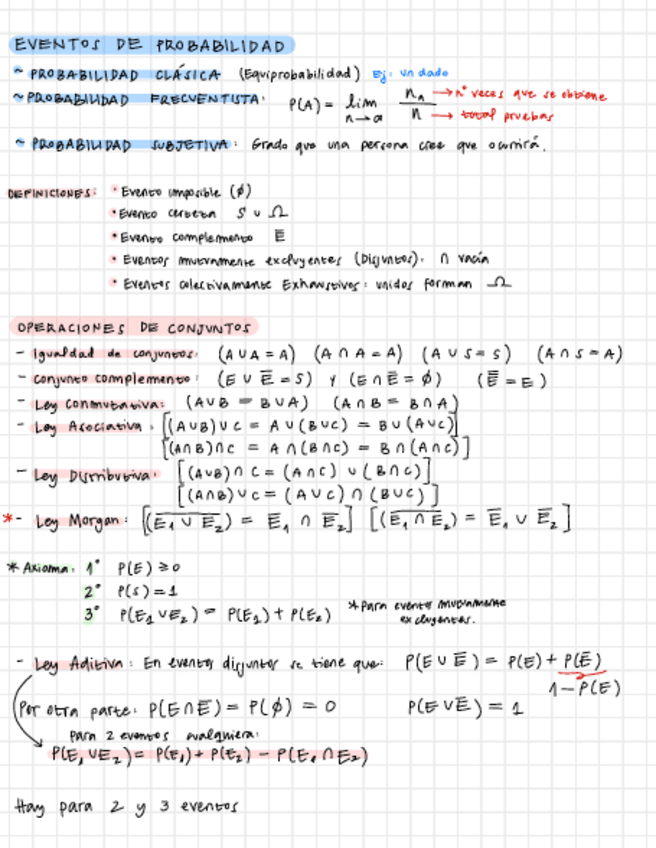 EVENTOS DE PROBABILIDAD
~ PROBABILIDAD CLÁSICA (Equiprobabilidad) Ej: un dado
~ PROBABILIDAD FRECUENTISTA: P(A) = lim n→∞ n_A / n → n° veces que se obtiene → total pruebas
~ PROBABILIDAD SUBJETIVA: Grado que una persona cree que ocurrirá.
DEFINICIONES: • Evento imposible (∅)
• Evento certeza S ∪ Ω
• Evento complemento E̅
• Eventos mutuamente excluyentes (Disjuntos). ∩ vacía
• Eventos colectivamente Exhaustivos: unidos forman Ω
OPERACIONES DE CONJUNTOS
- Igualdad de conjuntos: (A ∪ A = A) (A ∩ A = A) (A ∪ S = S) (A ∩ S = A)
- Conjunto complemento: (E ∪ E̅ = S) y (E ∩ E̅ = ∅) (E̿ = E)
- Ley Conmutativa: (A∪B = B∪A) (A∩B = B∩A)
- Ley Asociativa: [(A∪B)∪C = A∪(B∪C) = B∪(A∪C)]
[(A∩B)∩C = A∩(B∩C) = B∩(A∩C)]
- Ley Distributiva: [(A∪B)∩C = (A∩C) ∪ (B∩C)]
[(A∩B)∪C = (A∪C) ∩ (B∪C)]
*- Ley Morgan: [(E₁ ∪ E₂)‾ = E̅₁ ∩ E̅₂] [(E₁ ∩ E₂)‾ = E̅₁ ∪ E̅₂]
* Axioma: 1° P(E) ≥ 0
2° P(S) = 1
3° P(E₁∪E₂) = P(E₁) + P(E₂) * Para eventos mutuamente excluyentes.
- Ley Aditiva: En eventos disjuntos se tiene que: P(E ∪ E̅) = P(E) + P(E̅)
1 − P(E)
Por otra parte: P(E∩E̅) = P(∅) = 0 P(E∪E̅) = 1
Para 2 eventos cualquiera:
P(E₁∪E₂) = P(E₁) + P(E₂) − P(E₁∩E₂)
Hay para 2 y 3 eventos